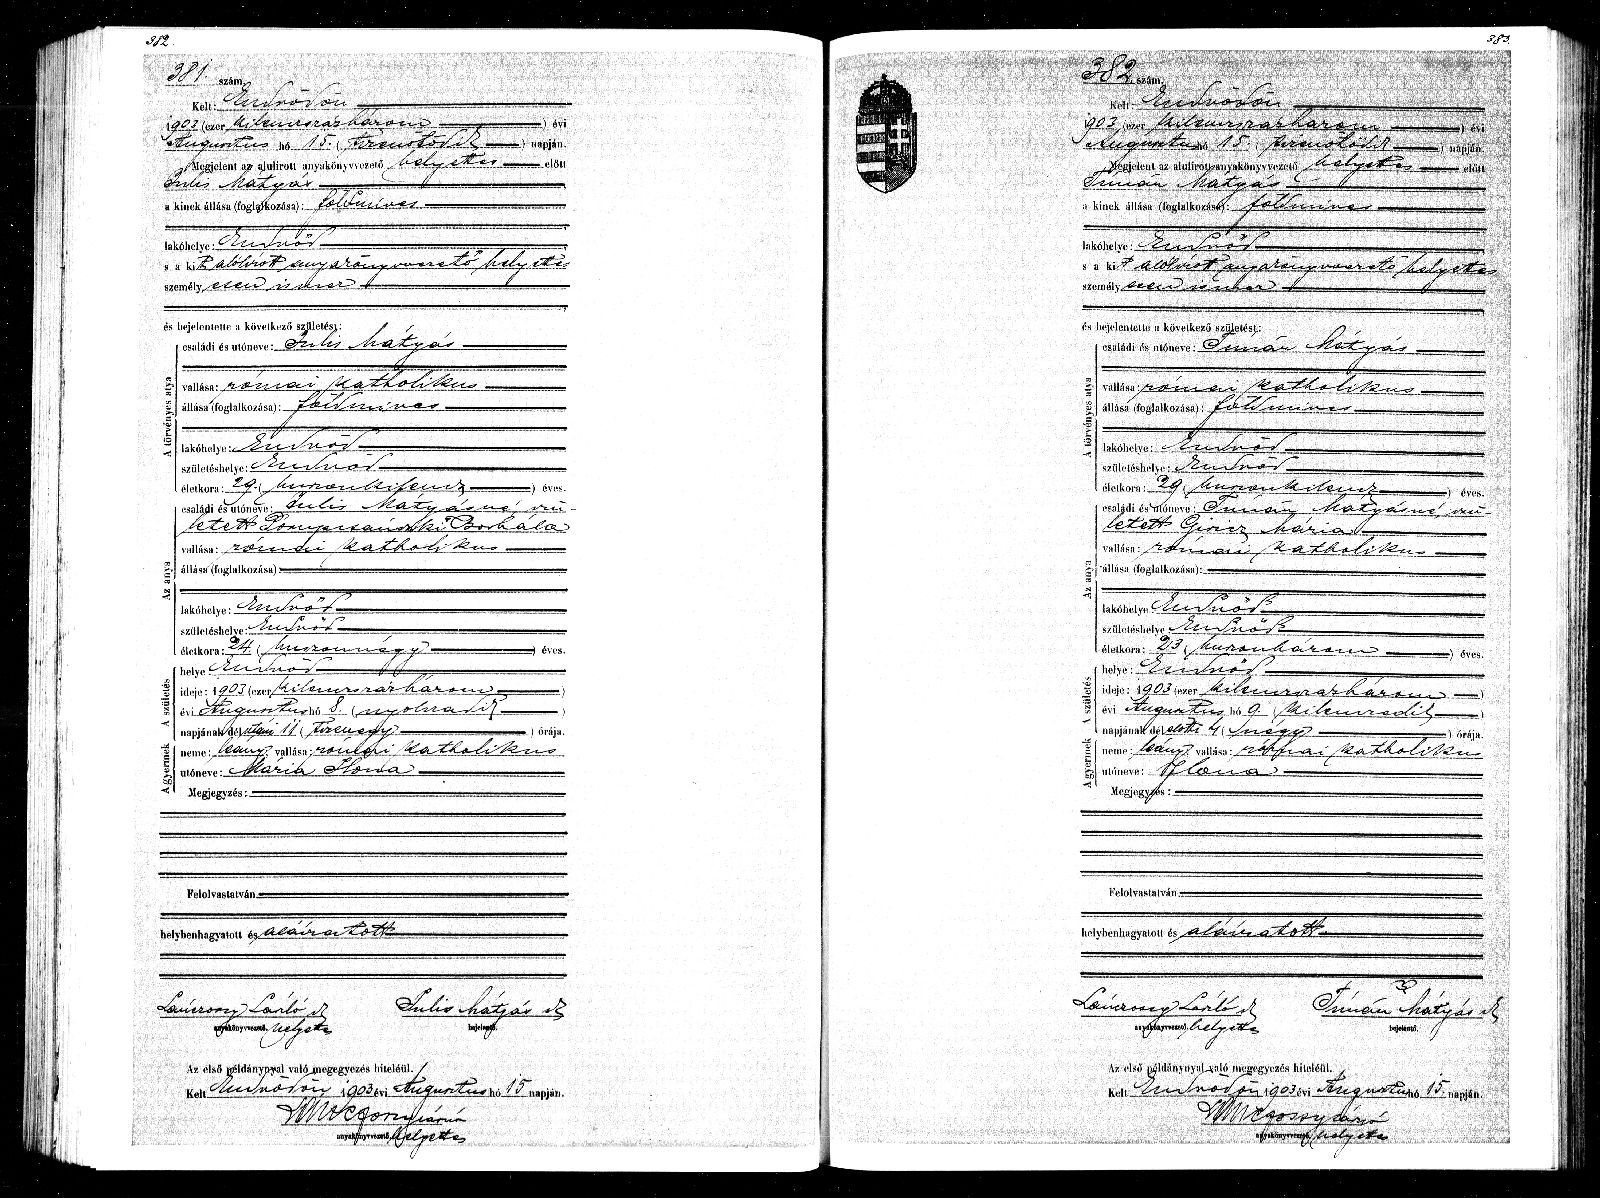 382.
381. szám.
Kelt: Endrődön
1903 (ezer kilencszázhárom ) évi
Augusztus hó 15. ( tizenötödik ) napján.
Megjelent az alulirott anyakönyvvezető helyettes előtt
Mátyás
a kinek állása (foglalkozása): földmíves
lakóhelye: Endrőd
s a kit alólirott anyakönyvvezető helyettes
személyesen ismer
és bejelentette a következő születést:
A törvényes atya
családi és utóneve: Mátyás
vallása: római katholikus
állása (foglalkozása): földmíves
lakóhelye: Endrőd
születéshelye: Endrőd
életkora: 29. ( huszonkilencz ) éves.
Az anya
családi és utóneve: Mátyásné, szü-
letett Borbála
vallása: római katholikus
állása (foglalkozása):
lakóhelye: Endrőd
születéshelye: Endrőd
életkora: 24. ( huszonnégy ) éves.
A születés
helye Endrőd
ideje: 1903 (ezer kilencszázhárom )
évi Augusztus hó 8. ( nyolczadik )
napjának dél utáni 11 ( tizenegy ) órája.
A gyermek
neme: leány, vallása: római katholikus
utóneve: Mária Ilona
Megjegyzés:
Felolvastatván
helybenhagyatott és aláiratott
László sk Mátyás sk
anyakönyvvezető helyettes bejelentő.
Az első példánynyal való megegyezés hiteléül.
Kelt Endrődön 1903 évi Augusztus hó 15 napján.
anyakönyvvezető, helyettes
383.
382 szám.
Kelt: Endrődön
1903 (ezer kilencszázhárom ) évi
Augusztus hó 15. ( tizenötödik ) napján.
Megjelent az alulirott anyakönyvvezető helyettes előtt
Timár Mátyás
a kinek állása (foglalkozása): földmíves
lakóhelye: Endrőd
s a kit alólirott anyakönyvvezető helyettes
személyesen ismer
és bejelentette a következő születést:
A törvényes atya
családi és utóneve: Timár Mátyás
vallása: római katholikus
állása (foglalkozása): földmíves
lakóhelye: Endrőd
születéshelye: Endrőd
életkora: 29 ( huszonkilencz ) éves.
Az anya
családi és utóneve: Timár Mátyásné, szü-
letett Giricz Mária
vallása: római katholikus
állása (foglalkozása):
lakóhelye Endrőd
születéshelye Endrőd
életkora: 23 ( huszonhárom ) éves.
A születés
helye: Endrőd
ideje: 1903 (ezer kilencszázhárom )
évi Augusztus hó 9. ( kilenczedik )
napjának dél előtti 4 ( négy ) órája.
A gyermek
neme: leány, vallása: római katholikus
utóneve: Ilona
Megjegyzés:
Felolvastatván
helybenhagyatott és aláiratott
László sk Timár Mátyás sk
anyakönyvvezető helyettes bejelentő.
Az első példánynyal való megegyezés hiteléül.
Kelt Endrődön 1903 évi Augusztus hó 15. napján.
anyakönyvvezető, helyettes